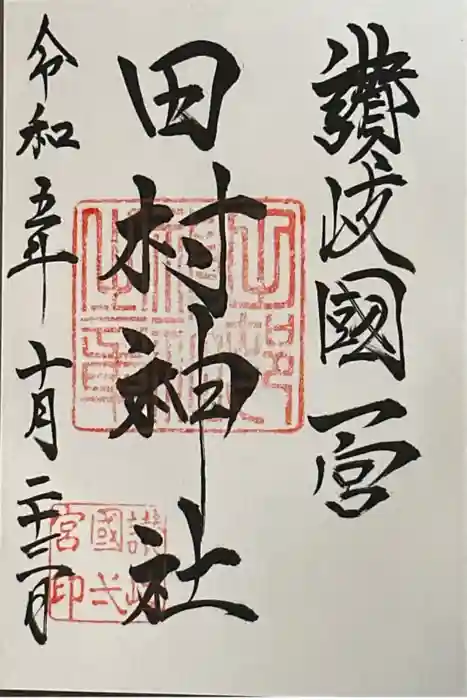 讚岐國一宮
田村神社
令和五年十月二十二日
讃岐
國弌
宮印